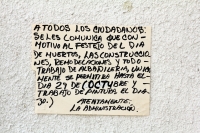 A TODOS LOS CIUDADANOS:
SE LES COMUNICA QUE CON-
MOTIVO AL FESTEJO DEL DIA
DE MUERTOS, LAS CONSTRUCCIO-
NES, REMODELACIONES Y TODO-
TRABAJO DE ALBAÑILERIA, UNICA-
MENTE SE PERMITIRA HASTA EL
DIA 29 DE (OCTUBRE Y
TRABAJO DE PINTURA EL DIA-
30.)
ATENTAMENTE:
LA ADMINISTRACIÓN